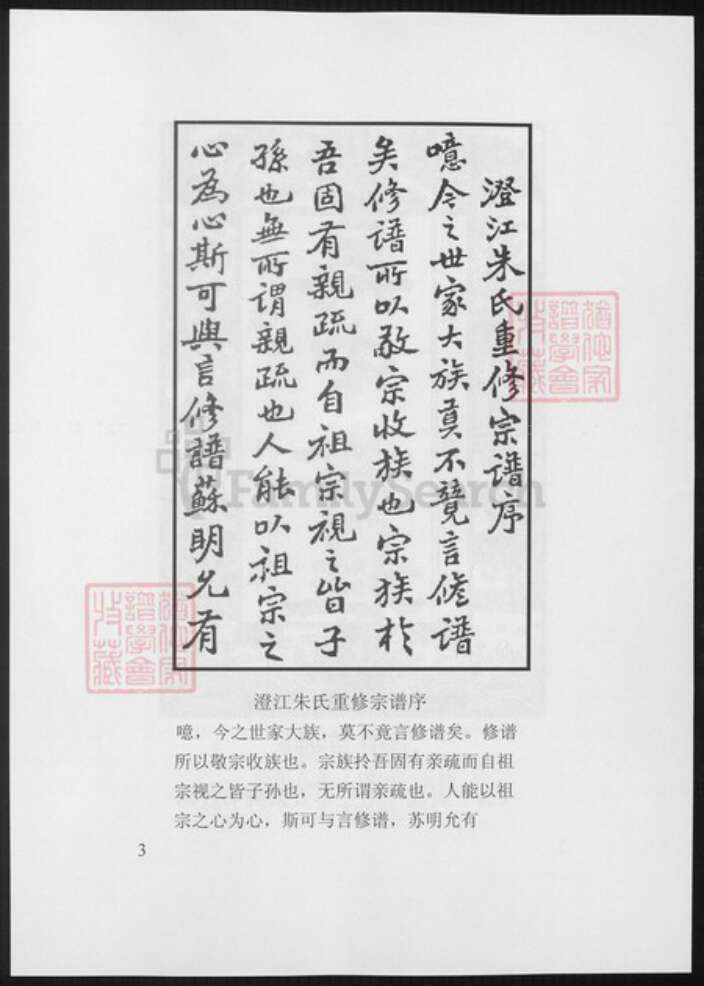 澄江朱氏重修宗譜序
噫今之世家大族莫不競言修譜
矣修譜所以敬宗收族也宗族於
吾固有親疏而自祖宗視之皆子
孫也無所謂親疏也人能以祖宗之
心為心斯可與言修譜蘇明允有
FamilySearch
澄江朱氏重修宗谱序
噫，今之世家大族，莫不竟言修谱矣。修谱
所以敬宗收族也。宗族拎吾固有亲疏而自祖
宗视之皆子孙也，无所谓亲疏也。人能以祖
宗之心为心，斯可与言修谱，苏明允有
3